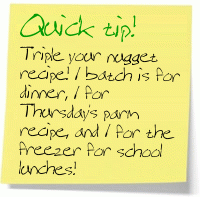 Quick tip!
Triple your nugget
recipe! 1 batch is for
dinner, 1 for
Thursday's parm
recipe, and 1 for the
freezer for school
lunches!